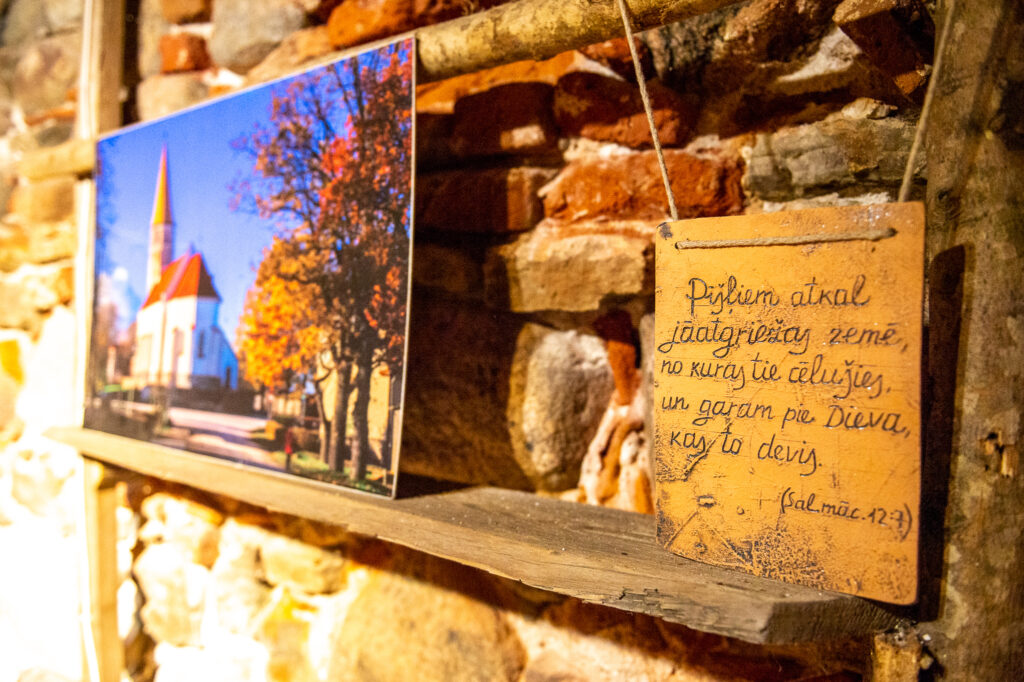 Pīšļiem atkal
jāatgriežas zemē,
no kuras tie cēlušies,
un garam pie Dieva,
kas to devis.
(Sal.māc.12:7)